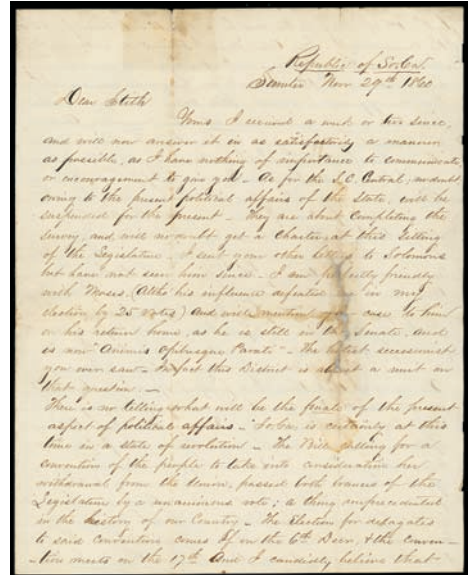 Republic of So. Ca.
Sumter Nov 29th 1860
Dear Steth
Yours I received a week or two since,
and will now answer it in as satisfactorily a manner
as possible, as I have nothing of importance to communicate
or encouragement to give you - As for the S.C. Central; no doubt
owing to the present political affairs of the State, will be
suspended for the present - They are about completing the
survey, and will no doubt get a Charter, at this Sitting
of the Legislature. I sent your other letter to Solomons
but have not seen him since - I am perfectly friendly
with Moses, (Altho his influence defeated in my
election, by 25 votes) and will mention your case to him
on his return home, as he is still in the Senate, and
is now "Animis Opibusque Parati" - The hottest secessionist
you ever saw - In fact this District is about a unit on
that question. -
There is no telling what will be the finale of the present
aspect of political affairs - So. Ca. is certainly at this
time in a state of revolution - The Bill calling for a
convention of the people to take into consideration her
withdrawal from the Union, passed both branches of the
Legislature by a unanimous vote; a thing unprecedented
in the history of our Country - The Election for delegates
to said convention comes off on the 6th Decr, & the conven-
-tion meets on the 17th And I candidly believe that